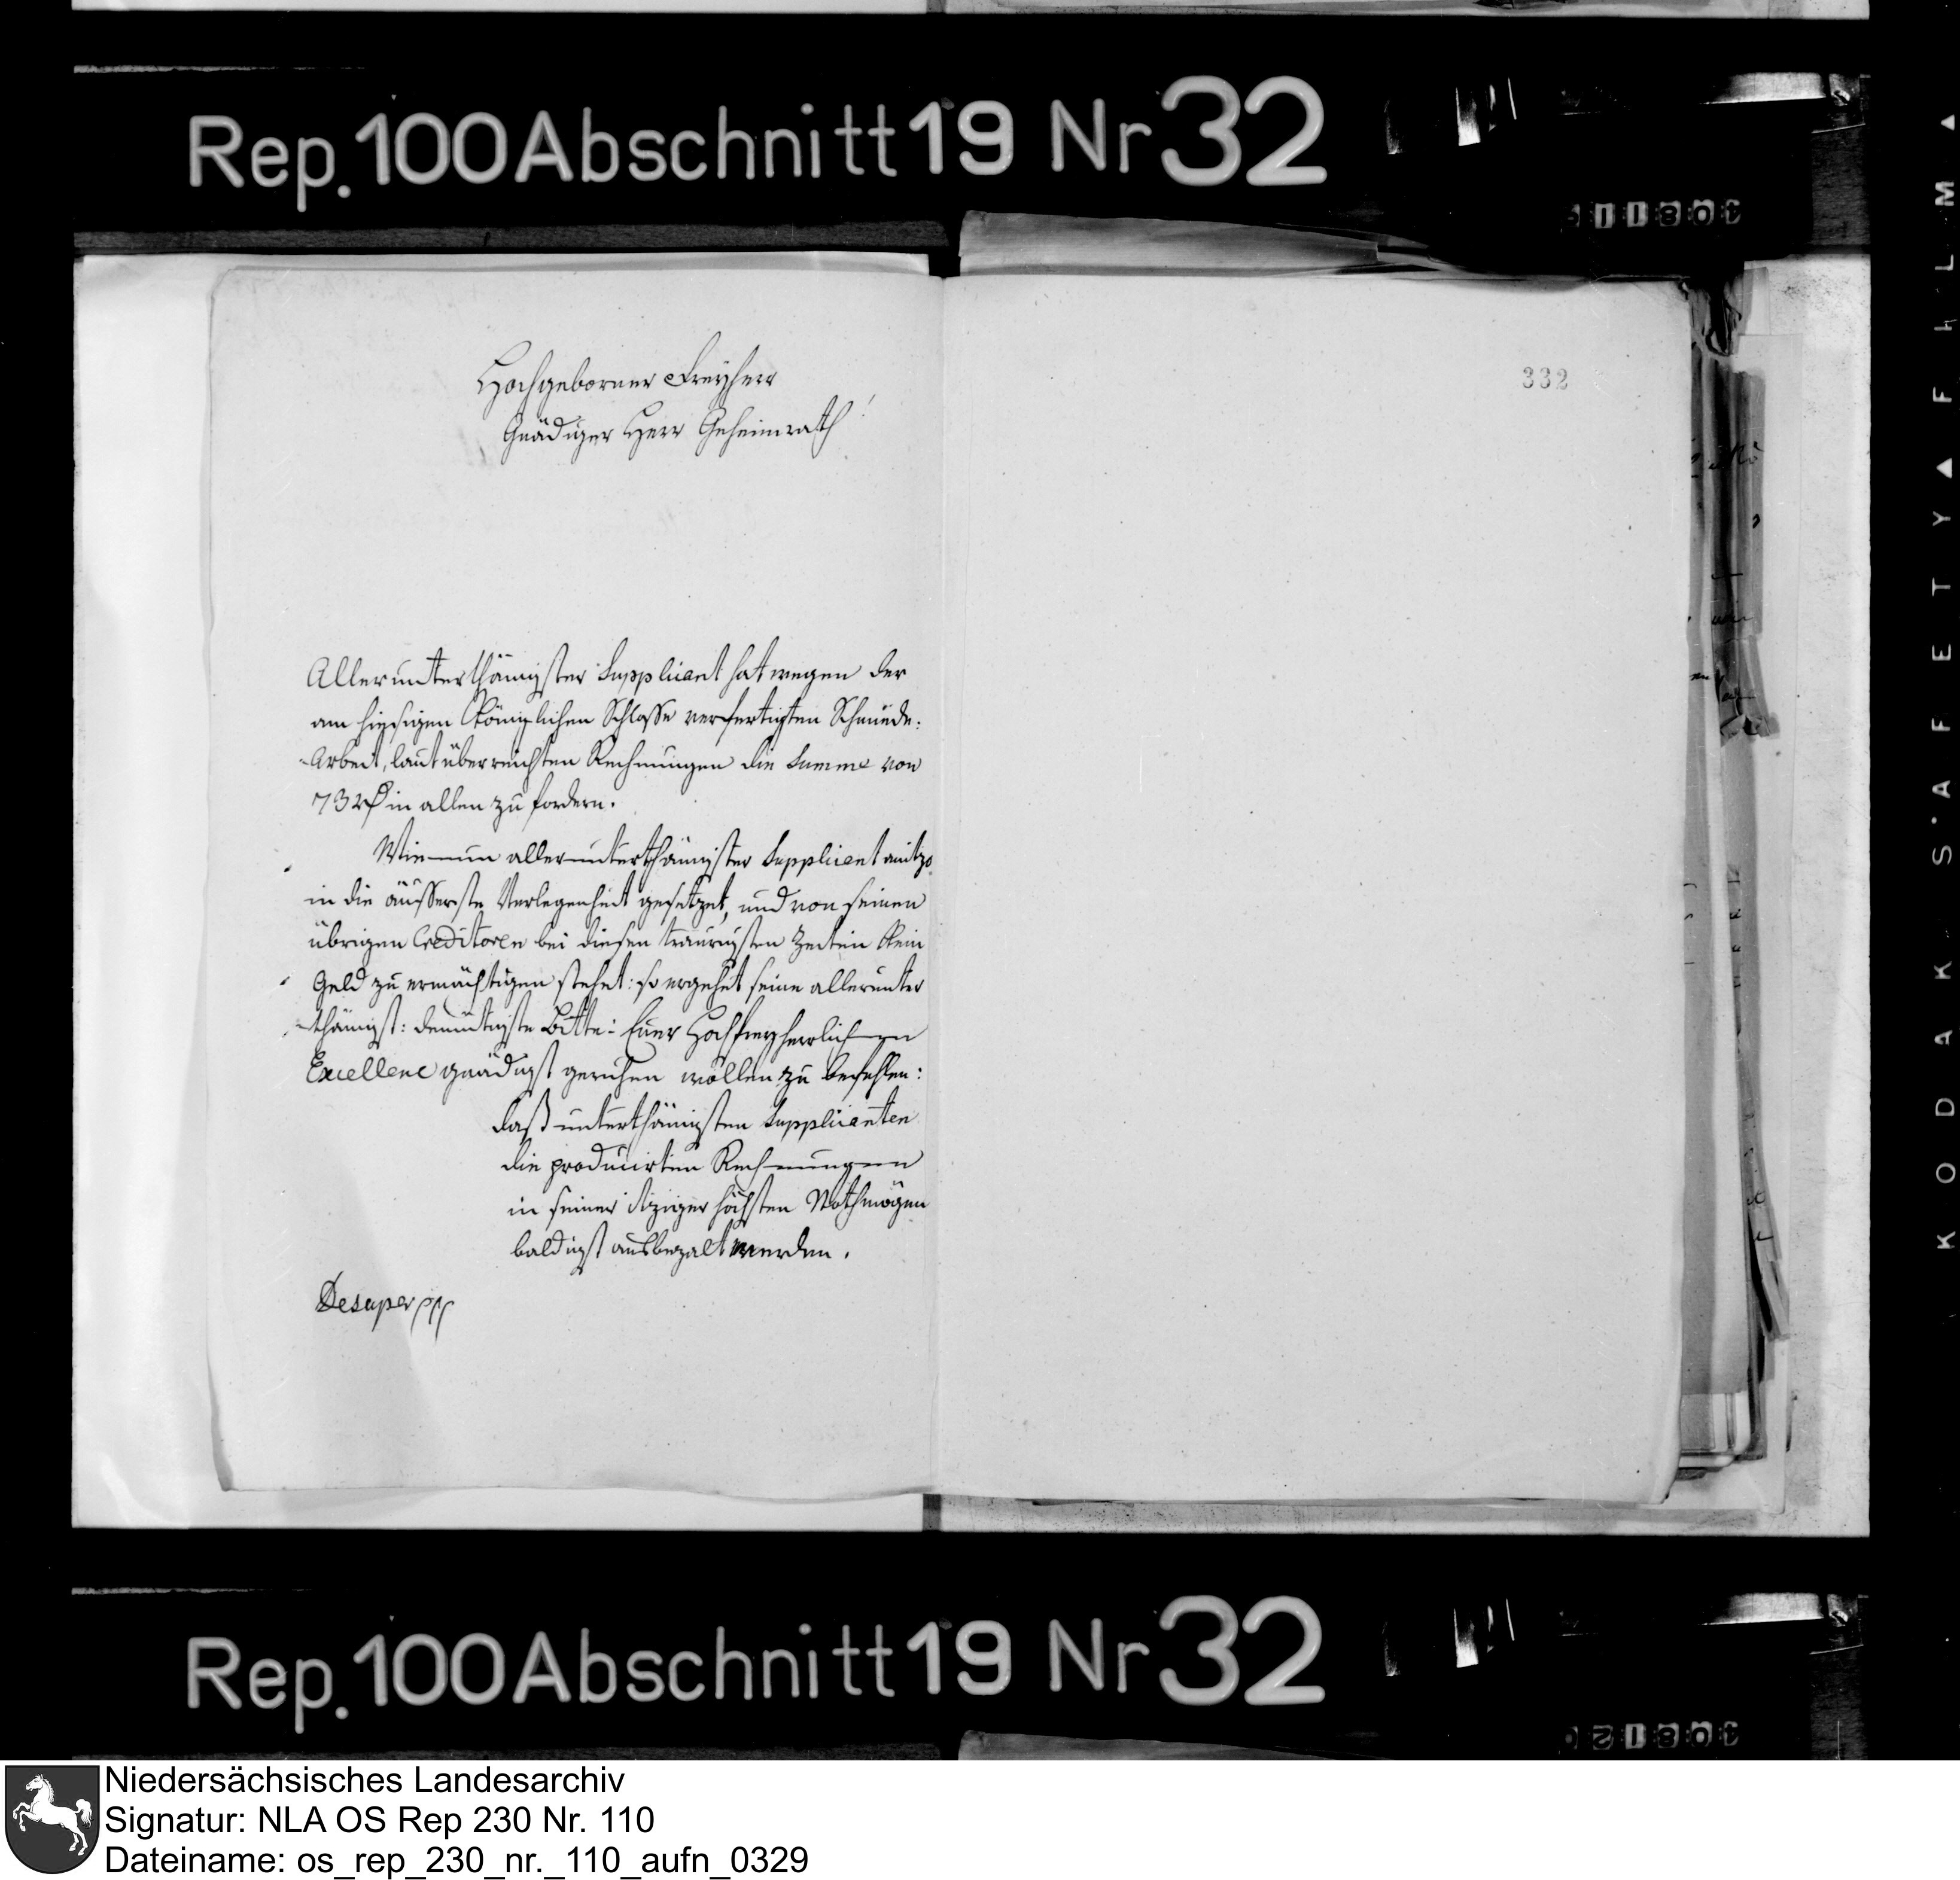 Rep. 100 Abschnitt 19 Nr 32
332
Hochgeborner Freyherr
Gnädiger Herr Geheimrath!
Allerunterthänigster Supplicant hat wegen der
am hiesigen Königlichen Schlosse verfertigten Schmiede:
Arbeit, laut überreichten Rechnungen die Summe von
732 in allen zu fordern.
Wie nun allerunterthänigster Supplicant anitzo
in die äusserste Verlegenheit gesetzet, und von seinen
übrigen Creditoren bei diesen traurigsten Zeiten kein
Geld zu ermächtigen stehet: so ergehet seine allerunter
thänigst: demütigste Bitte: Euer Hochfreyherrlichen
Excellenc gnädigst geruhen wollen zu befehlen:
daß unterthänigsten Supplicanten
die producirten Rechnungen
in seiner itziger höchsten Noth mögen
baldigst ausbezalt werden.
Desuper ppp
KODAK SAFETY FILM
Rep. 100 Abschnitt 19 Nr 32
Niedersächsisches Landesarchiv
Signatur: NLA OS Rep 230 Nr. 110
Dateiname: os_rep_230_nr._110_aufn_0329